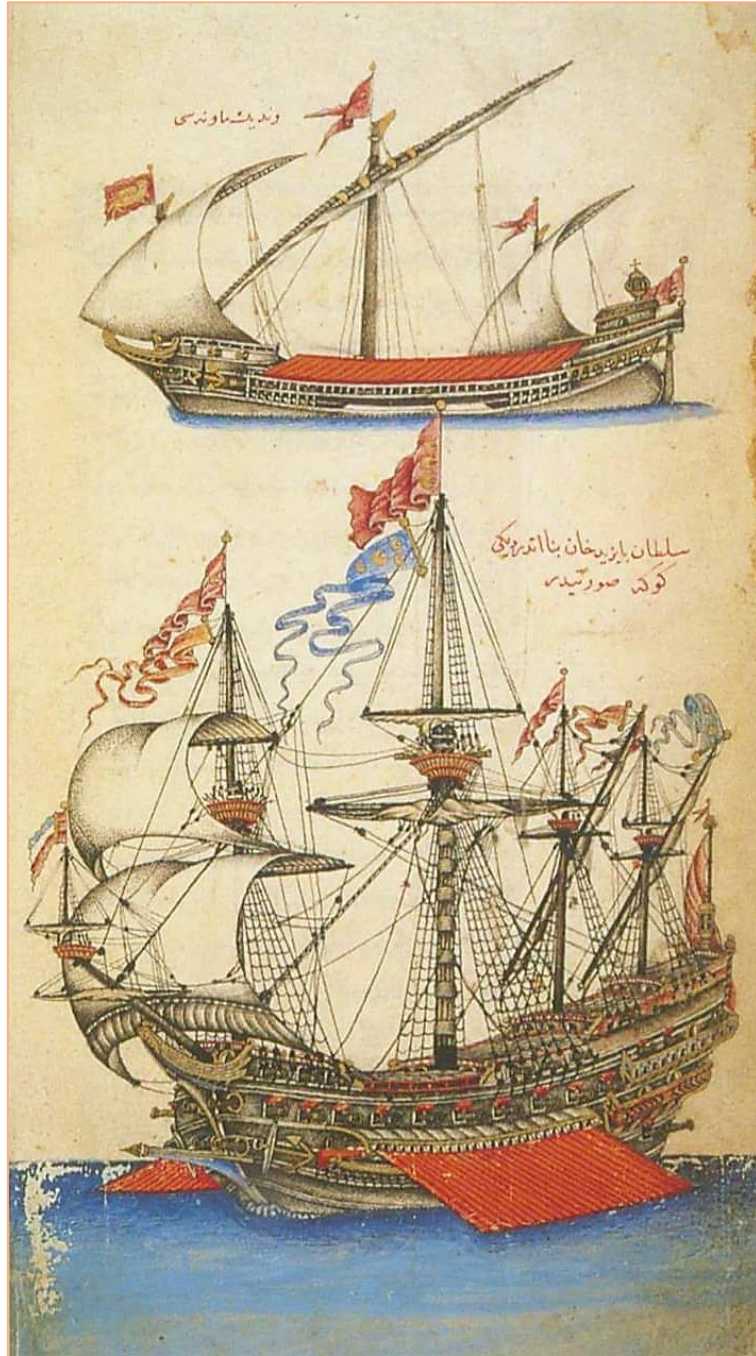 وندیك ماونه‌سی
سلطان بایزید خان بنا اندردیکی
کوکه صورتیدر